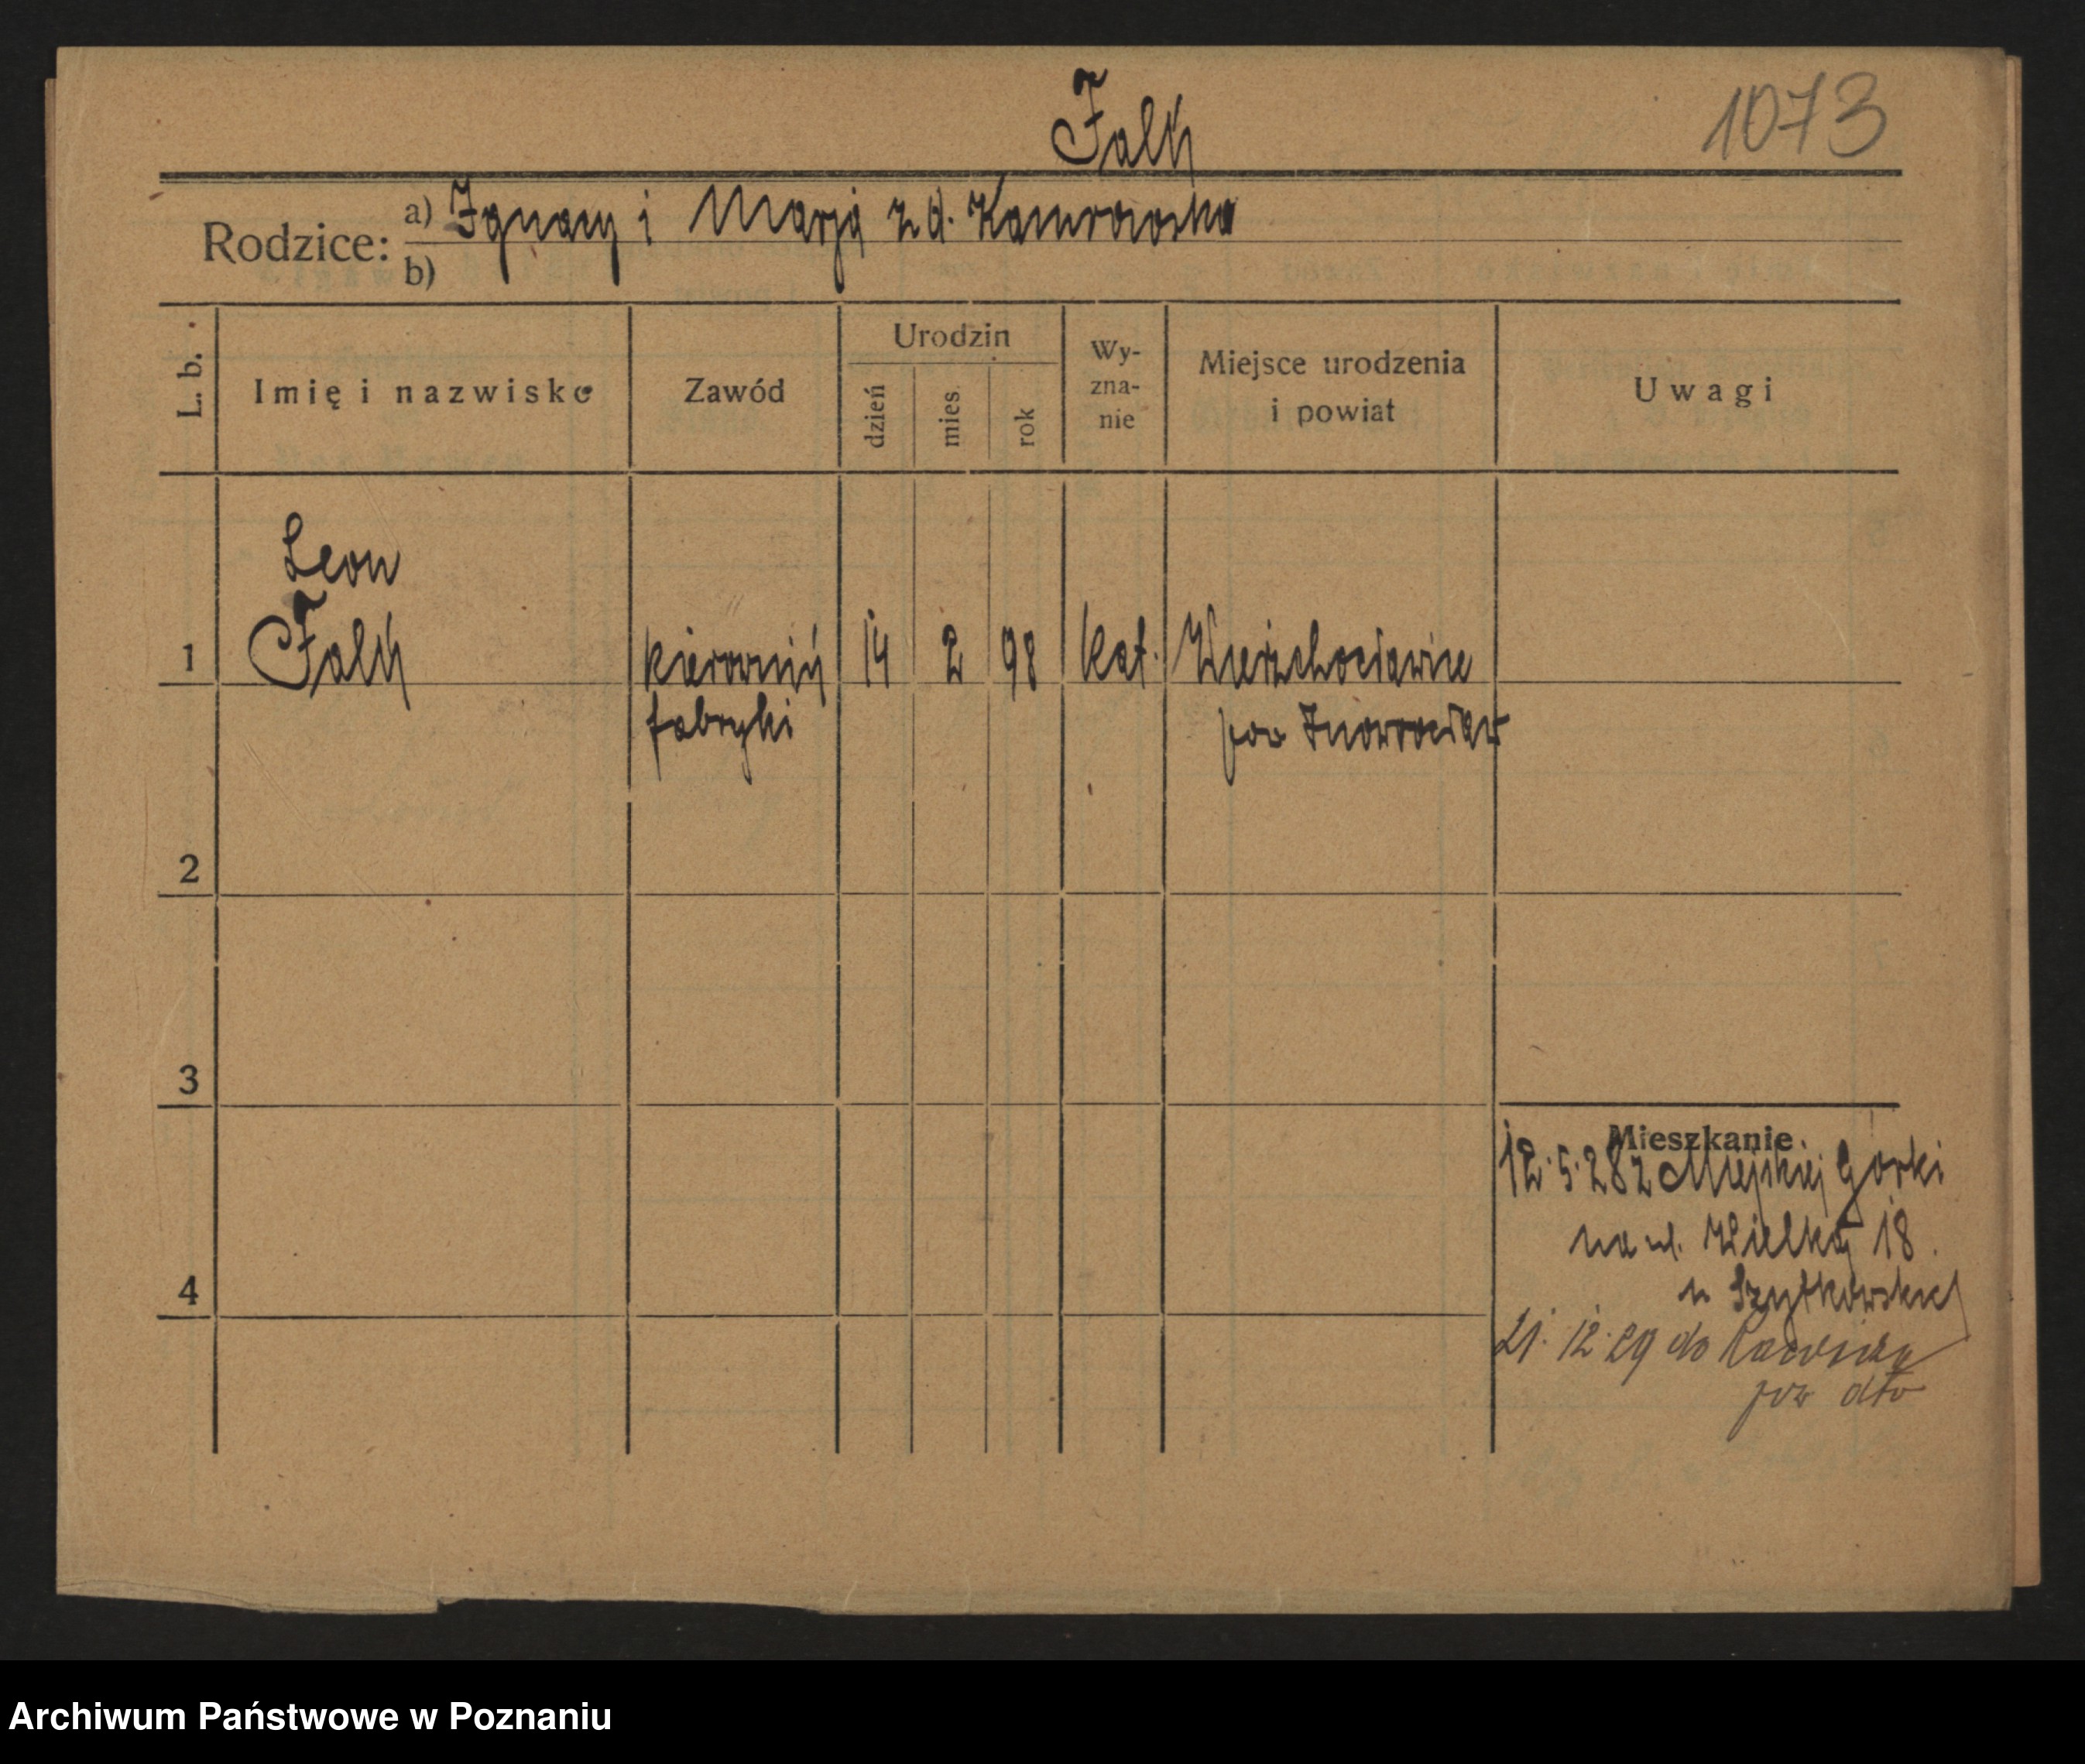 Falk
1073
Rodzice: a) Ignacy i Marja z d. Kamrowska
b)
L. b.
Imię i nazwisko
Zawód
Urodzin
dzień
mies.
rok
Wy-
zna-
nie
Miejsce urodzenia
i powiat
Uwagi
Leon
1 Falk kierownik 14 2 98 kat. Wierzchosławice
fabryki pow Inowrocław
2
3
Mieszkanie.
12.5.28 z Miejskiej Gorki
na ul. Wielką 18.
4
21.12.29 do Rawicza
pow dto
Archiwum Państwowe w Poznaniu